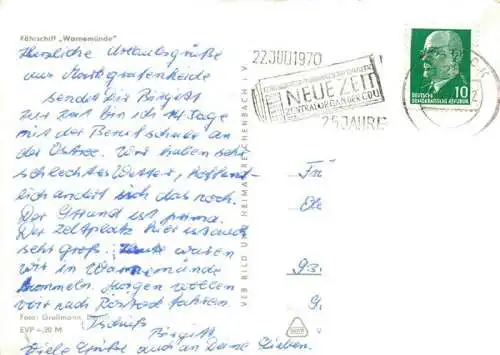 Fährschiff „Warnemünde"
Herzliche Urlaubsgrüße
aus Markgrafenheide
sendet Dir Birgitt
zur Zeit bin ich 14 Tage
mit der Berufsschule an
der Ostsee. Wir haben sehr
schlechtes Wetter, hoffent-
lich ändert sich das noch.
Der Strand ist prima.
Der Zeltplatz hier ist auch
sehr groß. Heute waren
wir in Warnemünde
bummeln. Morgen wollen
wir nach Rostock fahren.
Foto: Großmann,
EVP -,20 M
Tschüß
Birgitt
Viele Grüße auch an Deine Lieben.
VEB BILD UND HEIMAT REICHENBACH I. V.
22. JULI 1970
NEUE ZEIT
ZENTRALORGAN DER CDU
25 JAHRE
DEUTSCHE
DEMOKRATISCHE REPUBLIK
10
CK